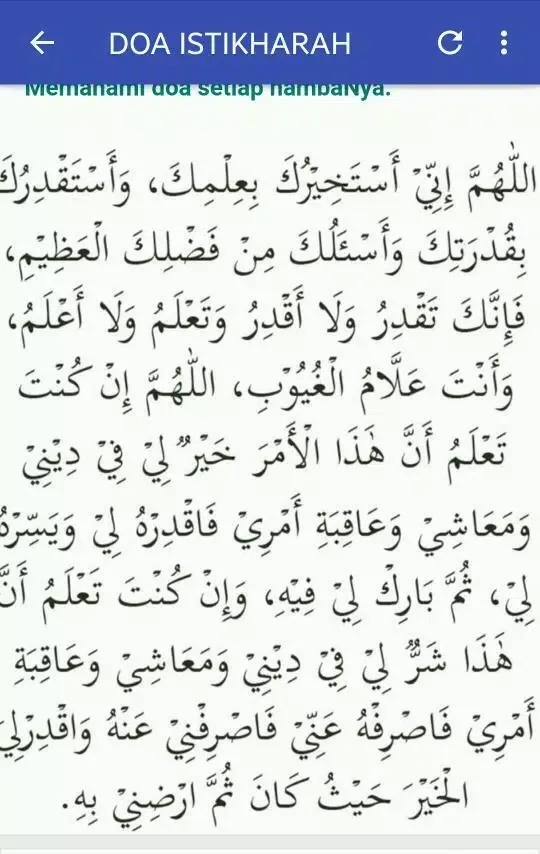 DOA ISTIKHARAH
Memahami doa setiap hambaNya.
اللّٰهُمَّ إِنِّيْ أَسْتَخِيْرُكَ بِعِلْمِكَ، وَأَسْتَقْدِرُكَ
بِقُدْرَتِكَ وَأَسْئَلُكَ مِنْ فَضْلِكَ الْعَظِيْمِ،
فَإِنَّكَ تَقْدِرُ وَلَا أَقْدِرُ وَتَعْلَمُ وَلَا أَعْلَمُ،
وَأَنْتَ عَلَّامُ الْغُيُوْبِ، اللّٰهُمَّ إِنْ كُنْتَ
تَعْلَمُ أَنَّ هٰذَا الْأَمْرَ خَيْرٌ لِيْ فِيْ دِيْنِيْ
وَمَعَاشِيْ وَعَاقِبَةِ أَمْرِيْ فَاقْدِرْهُ لِيْ وَيَسِّرْهُ
لِيْ، ثُمَّ بَارِكْ لِيْ فِيْهِ، وَإِنْ كُنْتَ تَعْلَمُ أَنَّ
هٰذَا شَرٌّ لِيْ فِيْ دِيْنِيْ وَمَعَاشِيْ وَعَاقِبَةِ
أَمْرِيْ فَاصْرِفْهُ عَنِّيْ فَاصْرِفْنِيْ عَنْهُ وَاقْدِرْلِيَ
الْخَيْرَ حَيْثُ كَانَ ثُمَّ ارْضِنِيْ بِهِ.